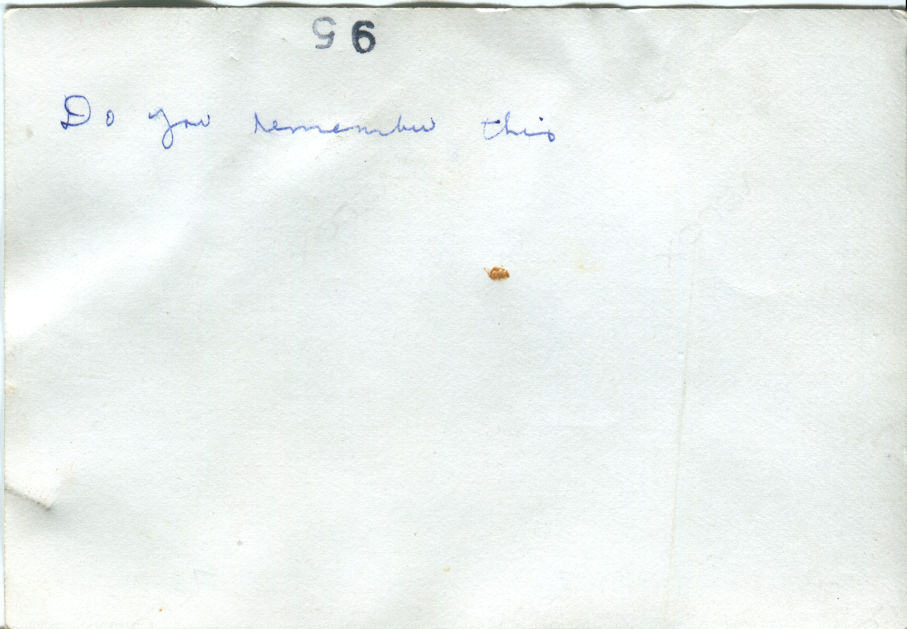 Do you remember this